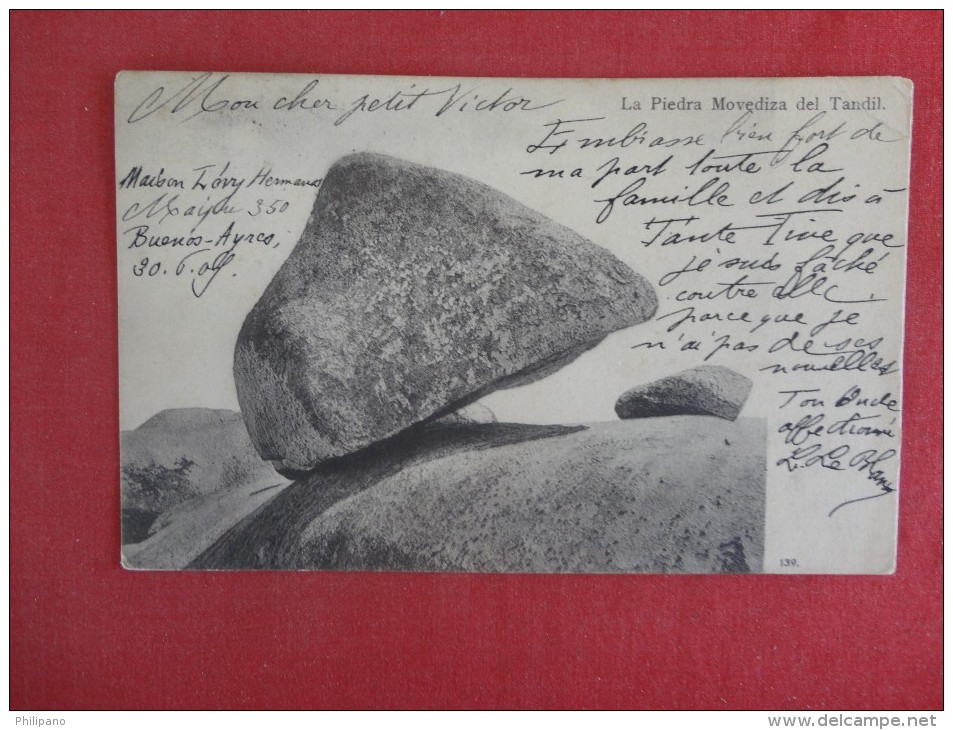 Mon cher petit Victor
La Piedra Movediza del Tandil.
Embrasse bien fort de
ma part toute la
famille et dis à
Tante Tine que
je suis fâché
contre elle
parce que je
n'ai pas de ses
nouvelles
Ton Oncle
affectionné
L. Le Blanc
Maison Lévy Hermanos
Maipu 350
Buenos-Ayres,
30.6.09.
139.
Philipano
www.delcampe.net